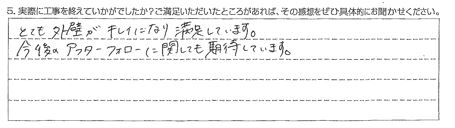 5. 実際に工事を終えていかがでしたか?ご満足いただいたところがあれば、その感想をぜひ具体的にお聞かせください。
とても外壁がキレイになり満足しています。
今後のアフターフォローに関しても期待しています。